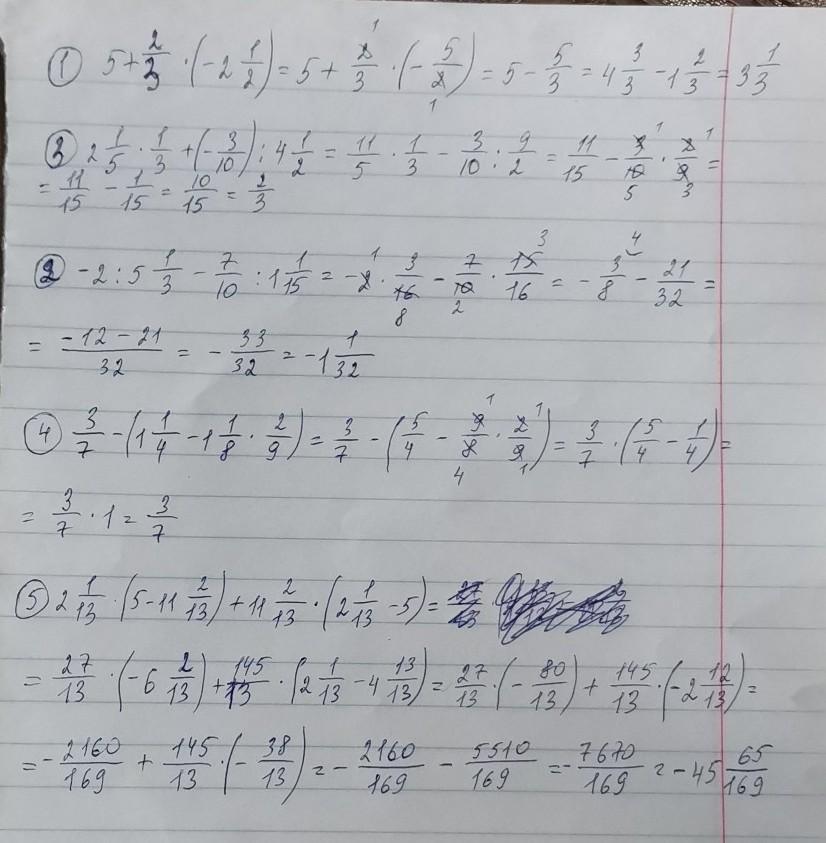 ① 5 + 2/3 · (-2 1/2) = 5 + 2/3 · (- 5/2) = 5 - 5/3 = 4 3/3 - 1 2/3 = 3 1/3
③ 2 1/5 · 1/3 + (- 3/10) : 4 1/2 = 11/5 · 1/3 - 3/10 : 9/2 = 11/15 - 3/10 · 2/9 =
= 11/15 - 1/15 = 10/15 = 2/3
② -2 : 5 1/3 - 7/10 : 1 1/15 = -2 · 3/16 - 7/10 · 15/16 = - 3/8 - 21/32 =
= (-12 - 21)/32 = - 33/32 = -1 1/32
④ 3/7 - (1 1/4 - 1 1/8 · 2/9) = 3/7 - (5/4 - 9/8 · 2/9) = 3/7 · (5/4 - 1/4) =
= 3/7 · 1 = 3/7
⑤ 2 1/13 · (5 - 11 2/13) + 11 2/13 · (2 1/13 - 5) =
= 27/13 · (-6 2/13) + 145/13 · (2 1/13 - 4 13/13) = 27/13 · (- 80/13) + 145/13 · (-2 12/13) =
= - 2160/169 + 145/13 · (- 38/13) = - 2160/169 - 5510/169 = - 7670/169 = -45 65/169